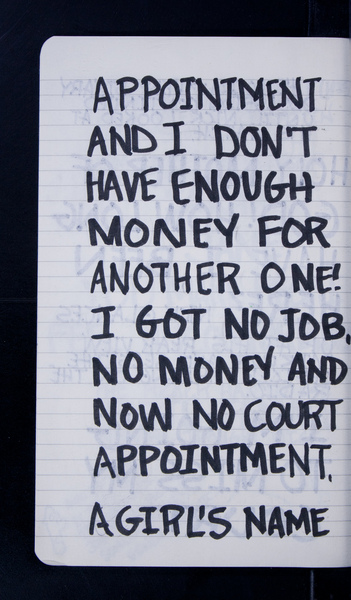 APPOINTMENT
AND I DON'T
HAVE ENOUGH
MONEY FOR
ANOTHER ONE!
I GOT NO JOB.
NO MONEY AND
NOW NO COURT
APPOINTMENT.
A GIRL'S NAME